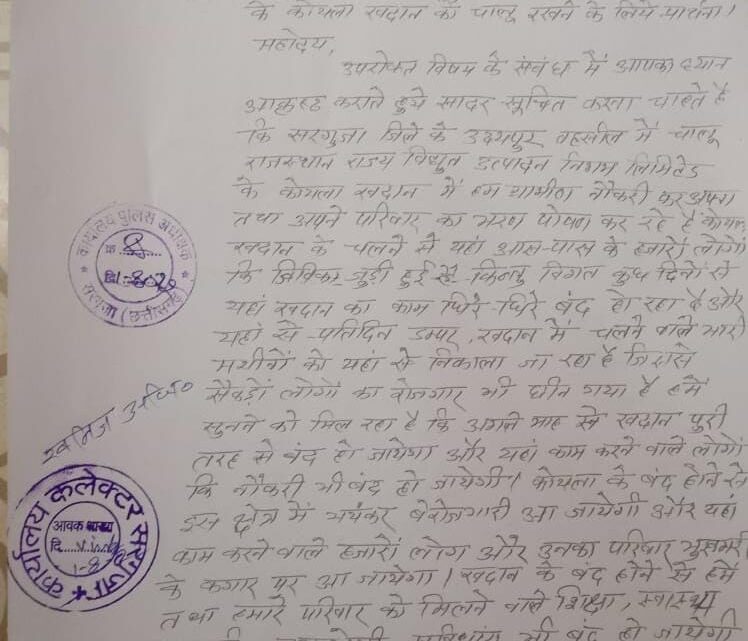 के कोयला खदान को चालू रखने के लिये प्रार्थना।
महोदय,
उपरोक्त विषय के संबंध में आपका ध्यान
आकृष्ट कराते हुये सादर सूचित करना चाहते है
कि सरगुजा जिले के उदयपुर तहसील में चालू
राजस्थान राज्य विद्युत उत्पादन निगम लिमिटेड
के कोयला खदान में हम ग्रामीण नौकरी कर अपना
तथा अपने परिवार का भरण पोषण कर रहे है कोयला
खदान के चलने से यहां आस-पास के हजारों लोगों
कि जिविका जुड़ी हुई है किन्तु विगत कुछ दिनों से
यहां खदान का काम धिरे-धिरे बंद हो रहा है और
यहां से प्रतिदिन डम्पर, खदान में चलने वाले भारी
मशीनों को यहां से निकाला जा रहा है जिससे
सैकड़ों लोगों का रोजगार भी छीन गया है हमें
सुनने को मिल रहा है कि अगले माह से खदान पुरी
तरह से बंद हो जायेगा और यहां काम करने वाले लोगों
कि नौकरी भी बंद हो जायेगी। कोयला के बंद होने से
इस क्षेत्र में भयंकर बेरोजगारी आ जायेगी और यहां
काम करने वाले हजारों लोग और उनका परिवार भुखमरी
के कगार पर आ जायेगा। खदान के बंद होने से हमें
तथा हमारे परिवार को मिलने वाले शिक्षा, स्वास्थ्य
भी बंद हो जायेगी
कार्यालय पुलिस अधीक्षक
क्र 8
दि 1-8-22
सरगुजा (छत्तीसगढ़)
खनिज
कार्यालय कलेक्टर सरगुजा
आवक शाखा
दि.
1-8-22